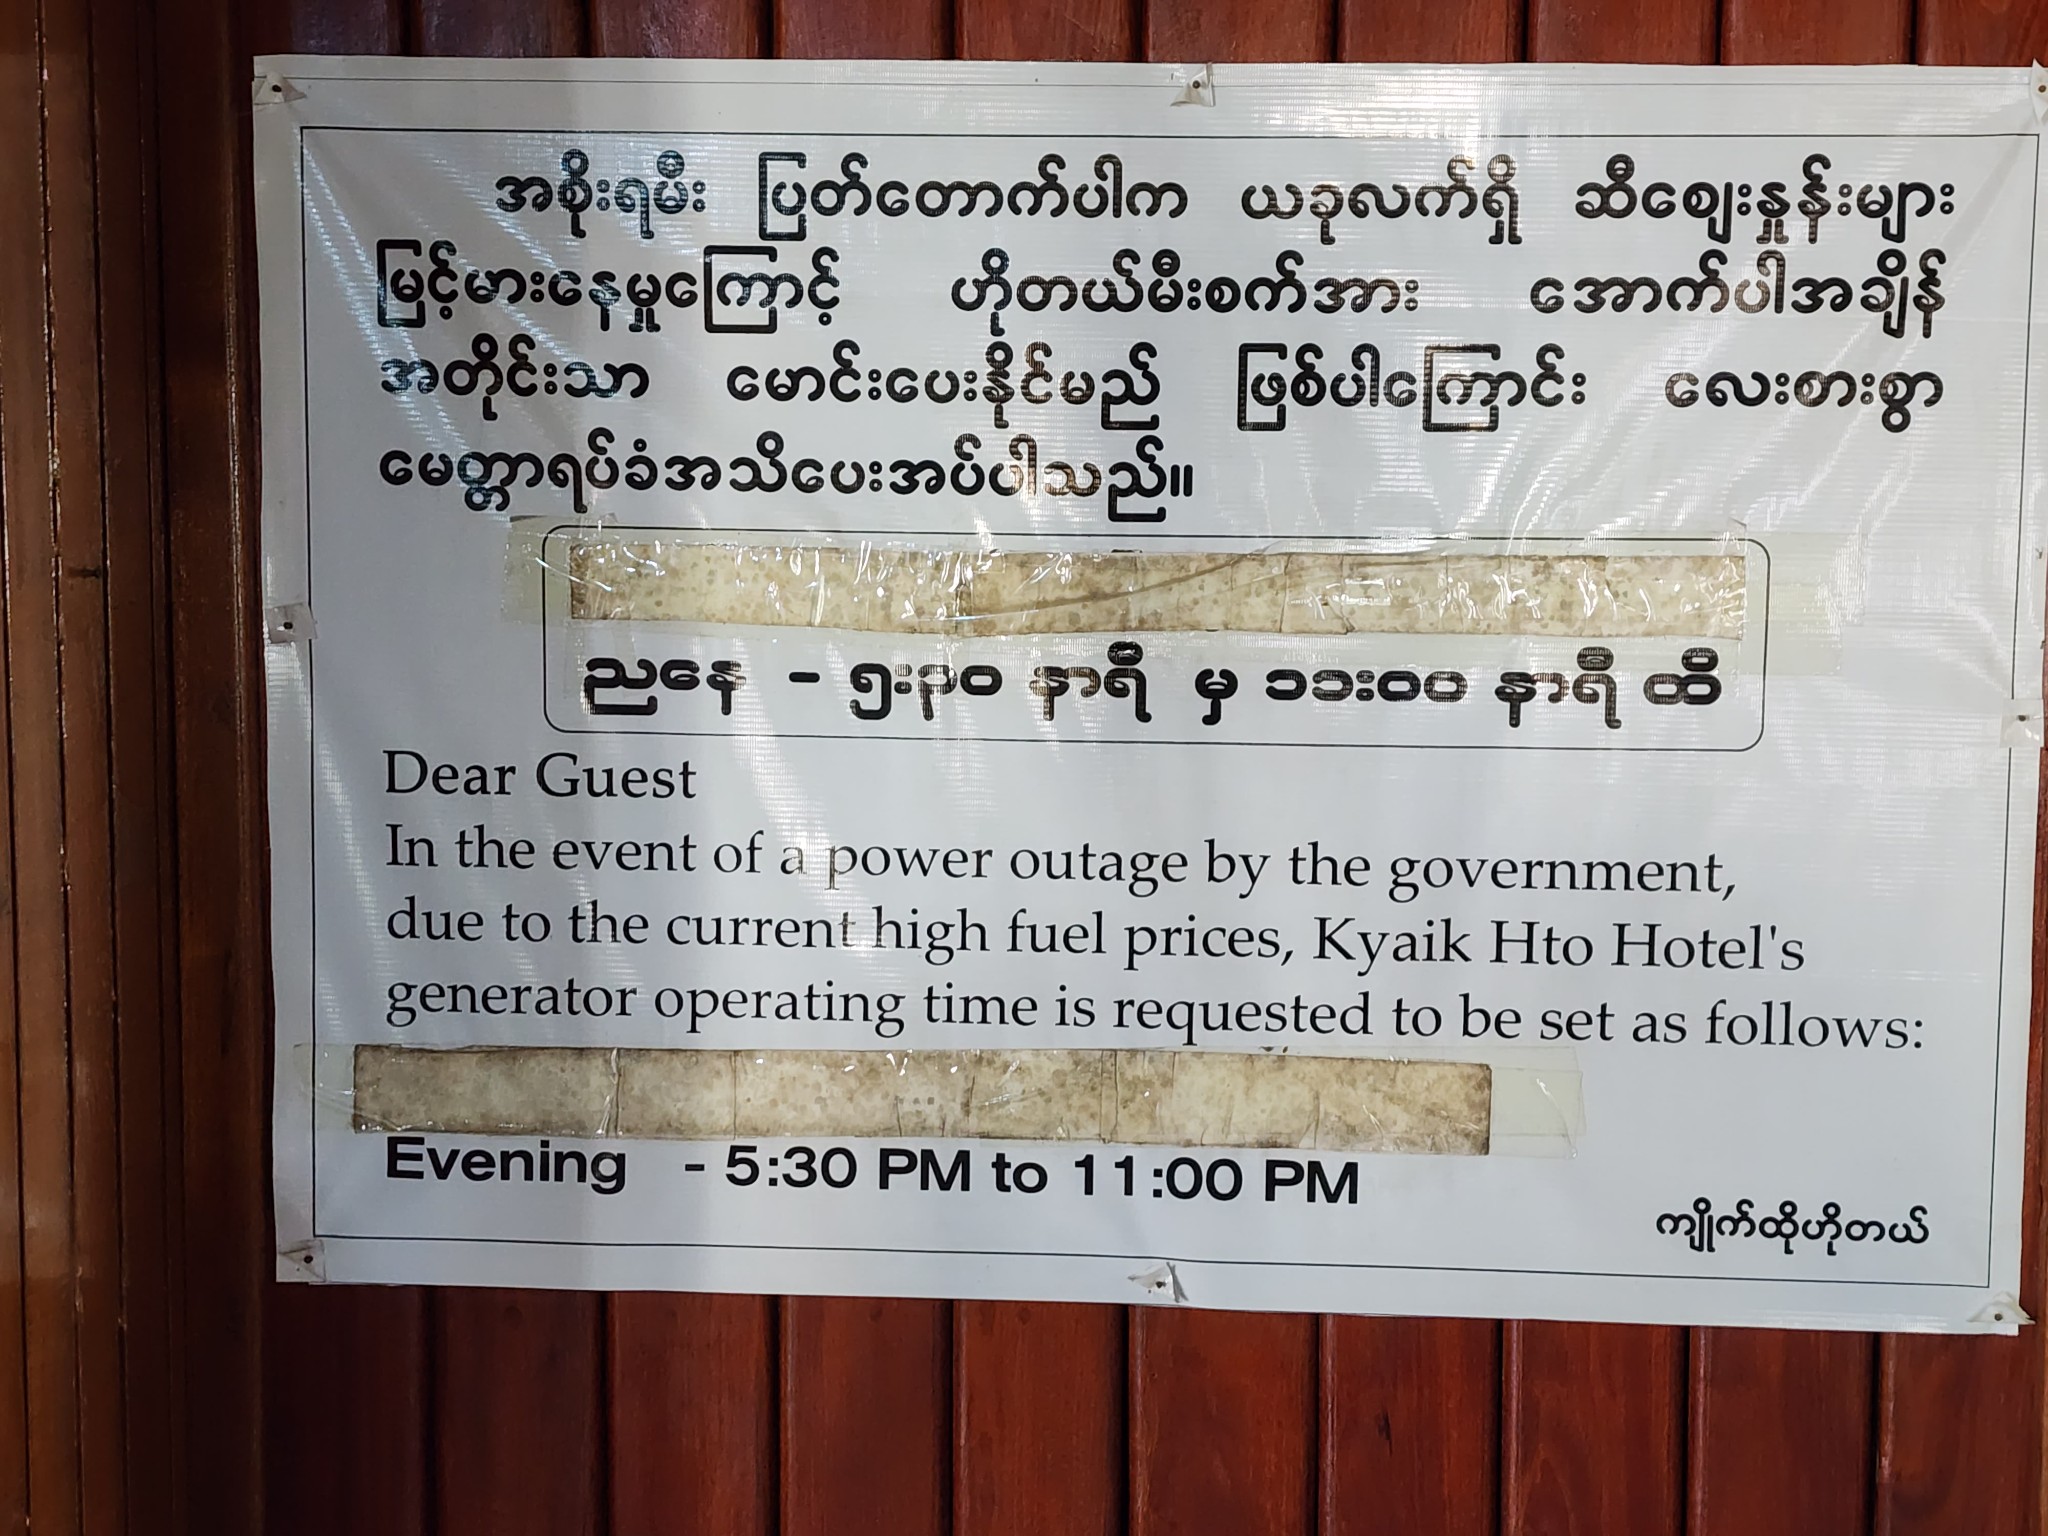 အစိုးရမီး ပြတ်တောက်ပါက ယခုလက်ရှိ ဆီဈေးနှုန်းများ
မြင့်မားနေမှုကြောင့် ဟိုတယ်မီးစက်အား အောက်ပါအချိန်
အတိုင်းသာ မောင်းပေးနိုင်မည် ဖြစ်ပါကြောင်း လေးစားစွာ
မေတ္တာရပ်ခံအသိပေးအပ်ပါသည်။
ညနေ - ၅:၃၀ နာရီ မှ ၁၁:၀၀ နာရီ ထိ
Dear Guest
In the event of a power outage by the government,
due to the current high fuel prices, Kyaik Hto Hotel's
generator operating time is requested to be set as follows:
Evening - 5:30 PM to 11:00 PM
ကျိုက်ထိုဟိုတယ်